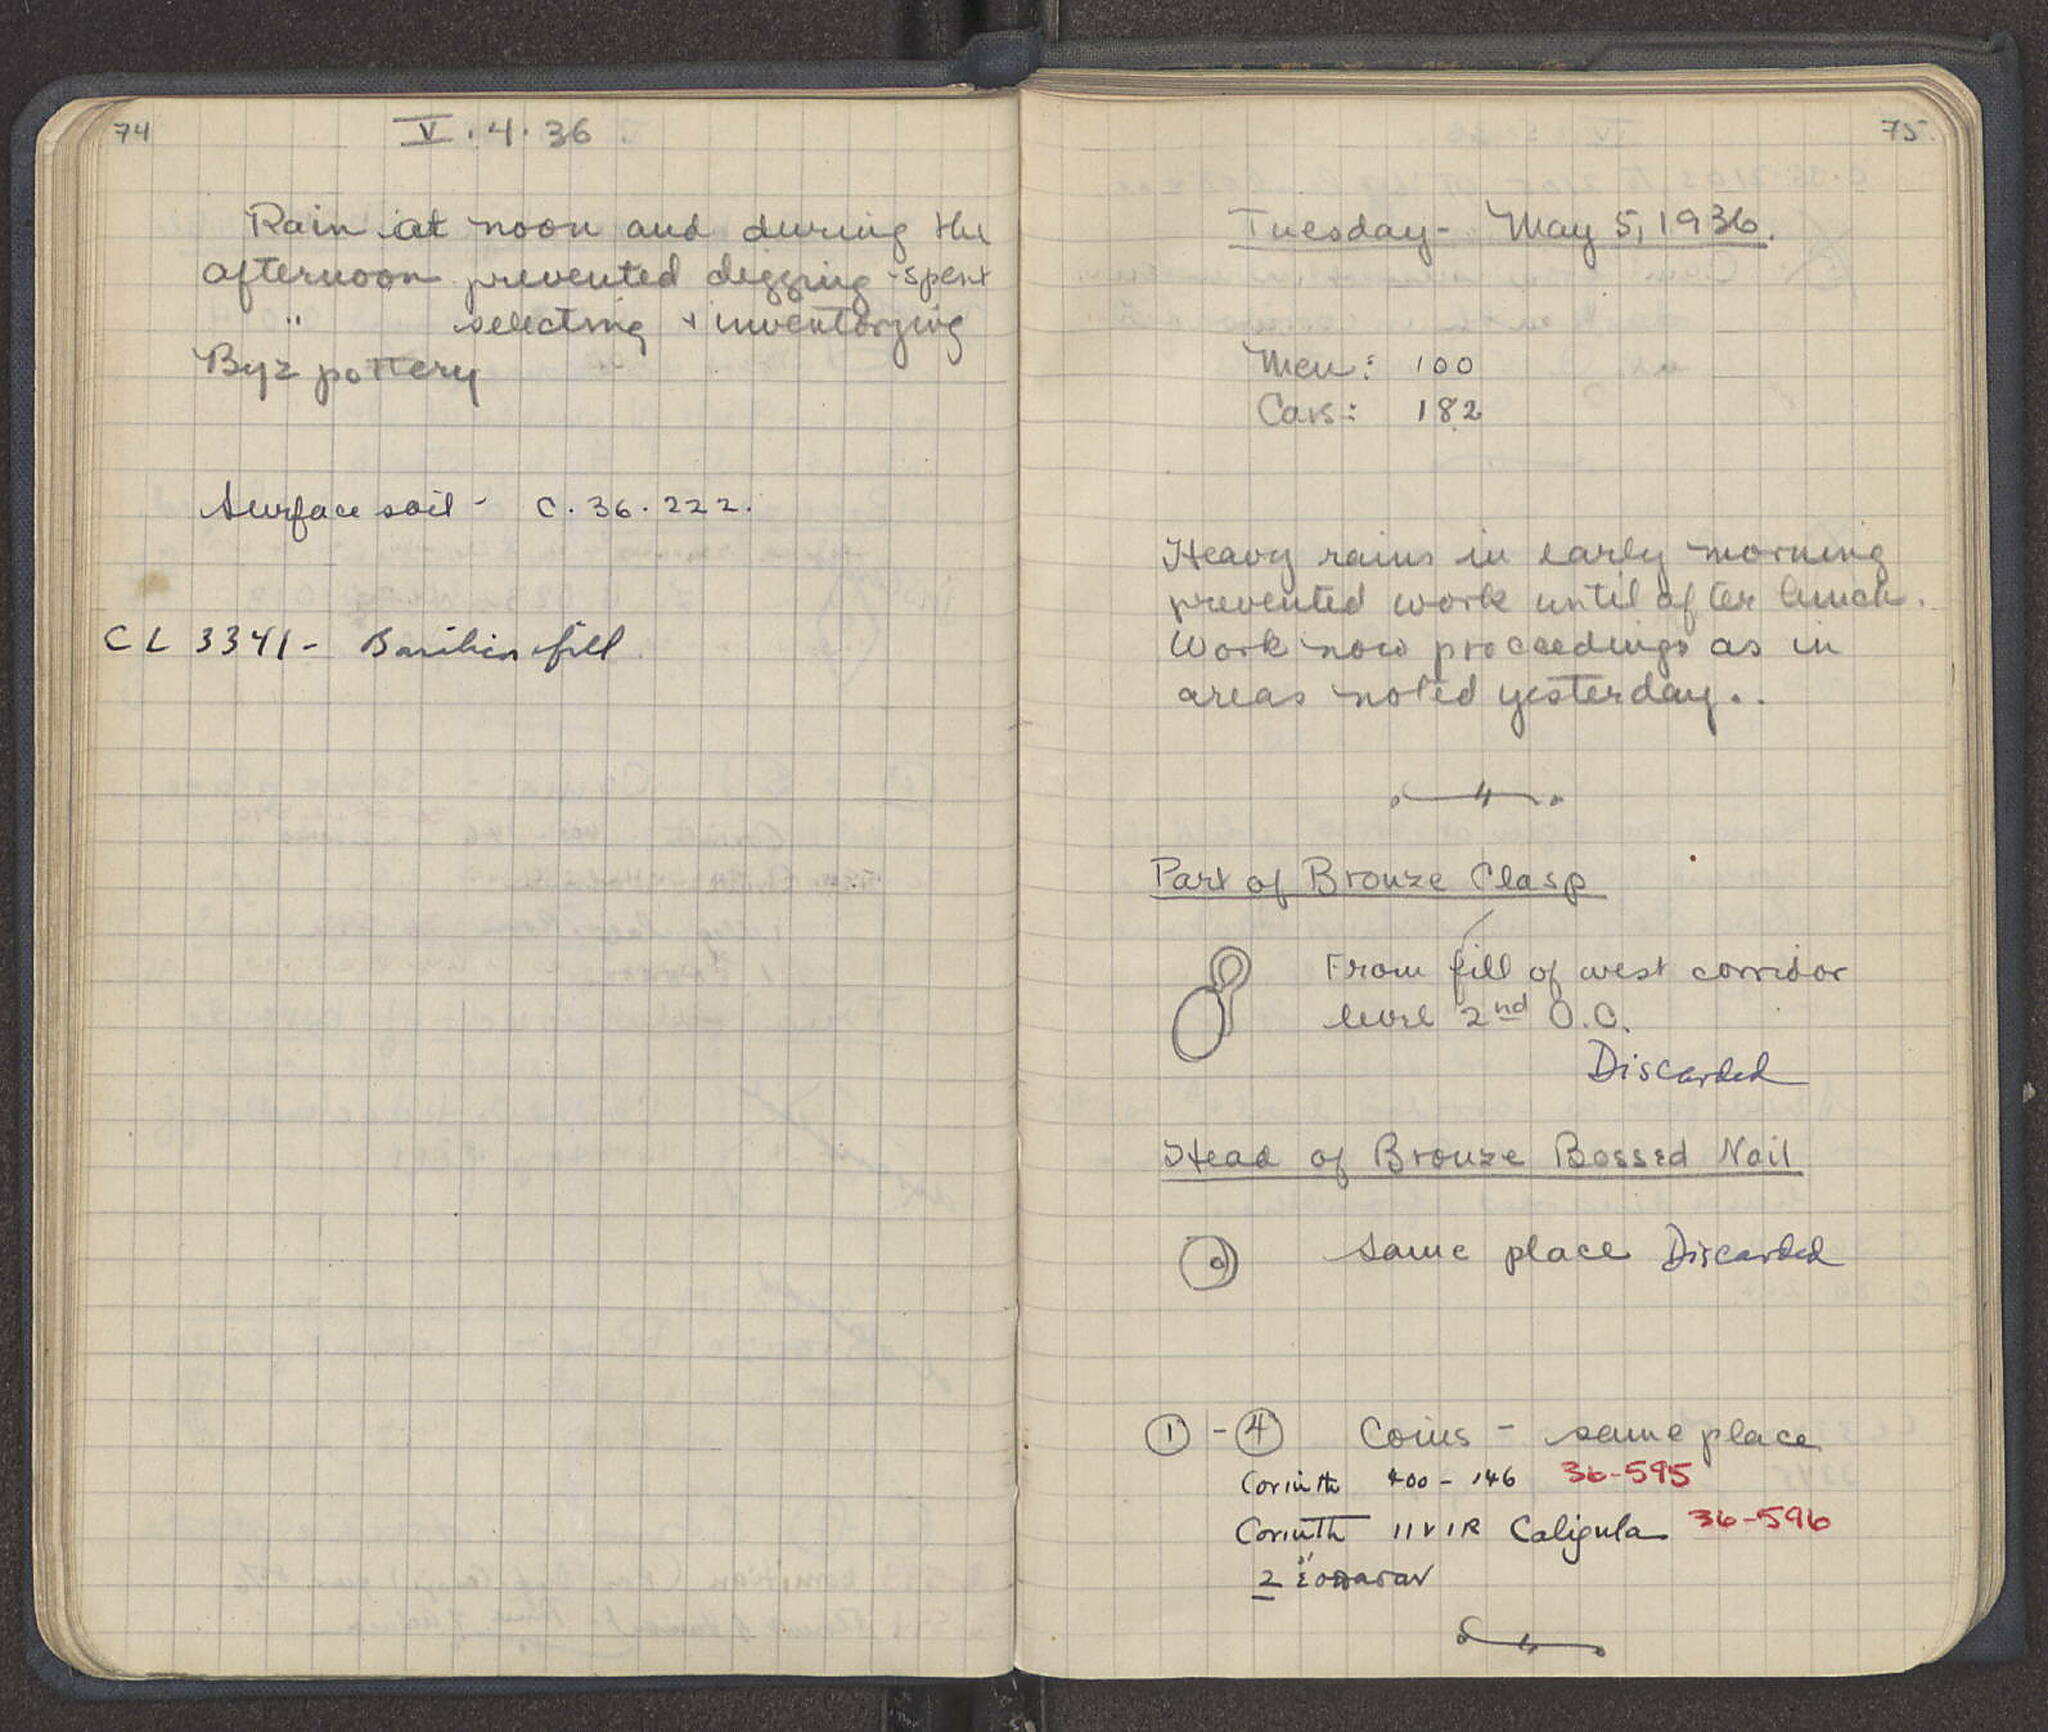 74
V. 4. 36
Rain at noon and during the
afternoon prevented digging - spent
" selecting + inventorying
Byz pottery
Surface soil - C. 36. 222.
CL 3341 - Basilica fill
75.
Tuesday - May 5, 1936.
Men: 100
Cars: 182
Heavy rains in early morning
prevented work until after lunch.
Work now proceedings as in
areas noted yesterday..
Part of Bronze Clasp
From fill of west corridor
level 2nd O.C.
Discarded
Head of Bronze Bossed Nail
Same place Discarded
① - ④ Coins - same place
Corinth 400 - 146 36-595
Corinth IIVIR Caligula 36-596
2